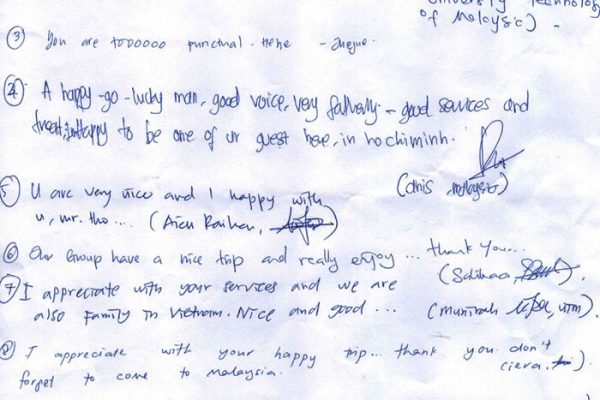 University Technology
of Malaysia)
③ You are toooooo punctual. Hehe
④ A happy-go-lucky man, good voice, very - good services and
treat. Happy to be one of ur guest here, in hochiminh.
(anis, malaysia)
⑤ U are very nice and I happy with
u, mr. tho... (
⑥ Our Group have a nice trip and really enjoy... thank you..
(
⑦ I appreciate with your services and we are
also Family in Vietnam. Nice and good ... (Munirah, UTM)
⑧ I appreciate with your happy trip... thank you. don't
forget to come to malaysia. ciera.)